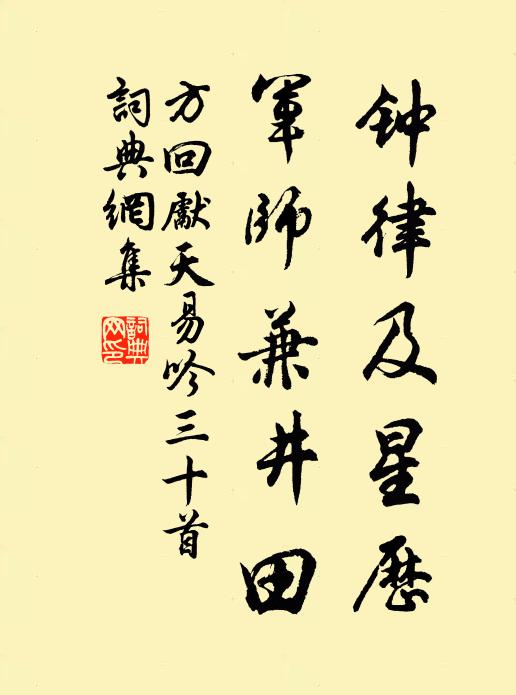 钟律及星历
軍師兼井田
方回獻天易吟三十首
詞典網集
詞典網印